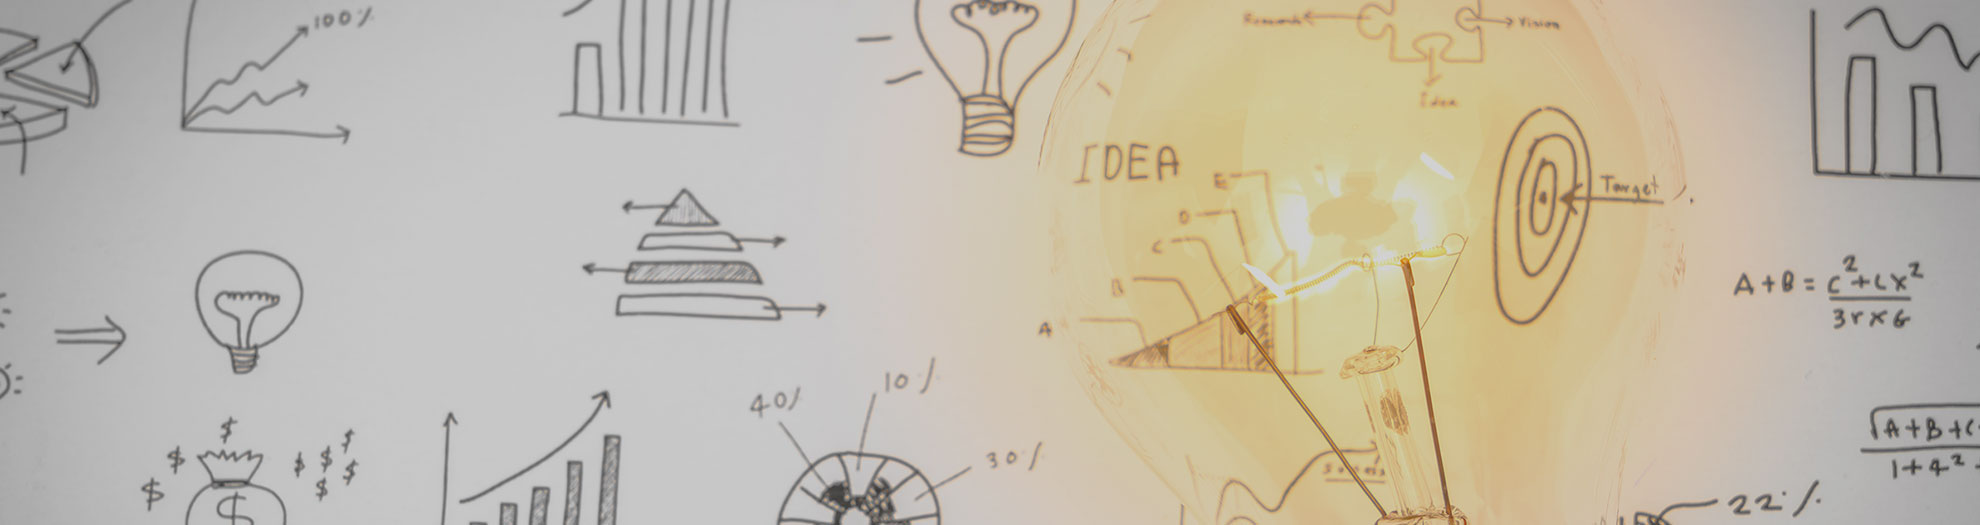 100%
Research
Vision
Idea
IDEA
E
D
C
B
A
Target
A+B = C²+Lx²
3rxG
40%
10%
30%
$
$
$
$
$
$
$
$
$
Success
√A+B+C
1+4²
22%